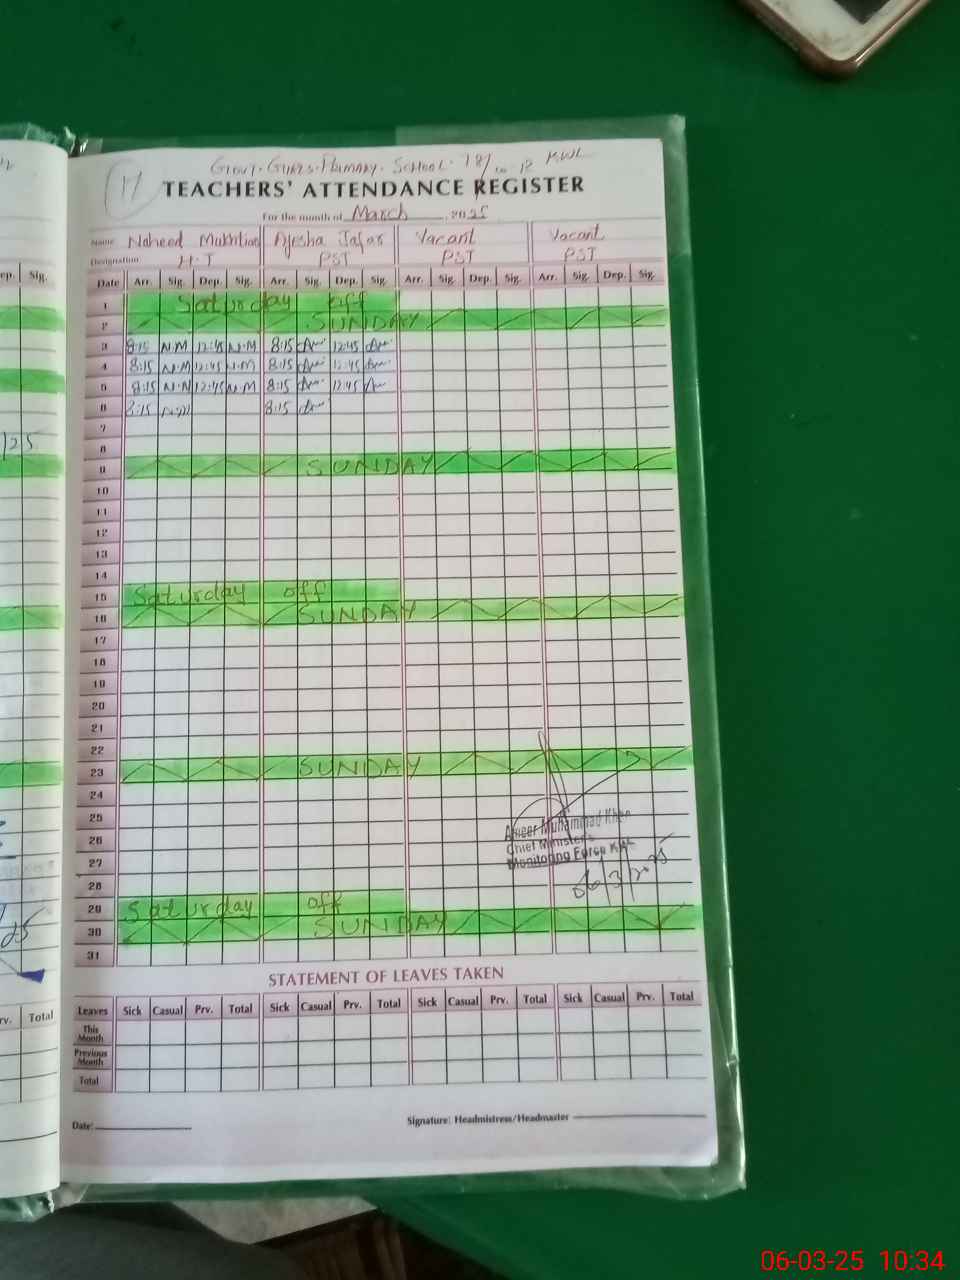 Govt. Girls. Primary. School. 78/10-R KWL
17
TEACHERS' ATTENDANCE REGISTER
For the month of March 2025
Name Naheed Mukhtiar Ayesha Jafar Vacant Vacant
Designation H.T PST PST PST
ep. Sig. Date Arr. Sig. Dep. Sig. Arr. Sig. Dep. Sig. Arr. Sig. Dep. Sig. Arr. Sig. Dep. Sig.
1 Saturday off
2 SUNDAY
3 8:15 N.M 12:45 N.M 8:15 12:45
4 8:15 N.M 12:45 N.M 8:15 12:45
5 8:15 N.M 12:45 N.M 8:15 12:45
6 8:15 N.M 8:15
7
8
9 SUNDAY
10
11
12
13
14
15 Saturday off
16 SUNDAY
17
18
19
20
21
22
23 SUNDAY
24
25
Ameer Muhammad Khan
26 Chief Minister's
27 Monitoring Force KWL
28 06/3/2025
29 Saturday off
30 SUNDAY
31
STATEMENT OF LEAVES TAKEN
rv. Total Leaves Sick Casual Prv. Total Sick Casual Prv. Total Sick Casual Prv. Total Sick Casual Prv. Total
This Month
Previous Month
Total
Date: Signature: Headmistress/Headmaster
06-03-25 10:34